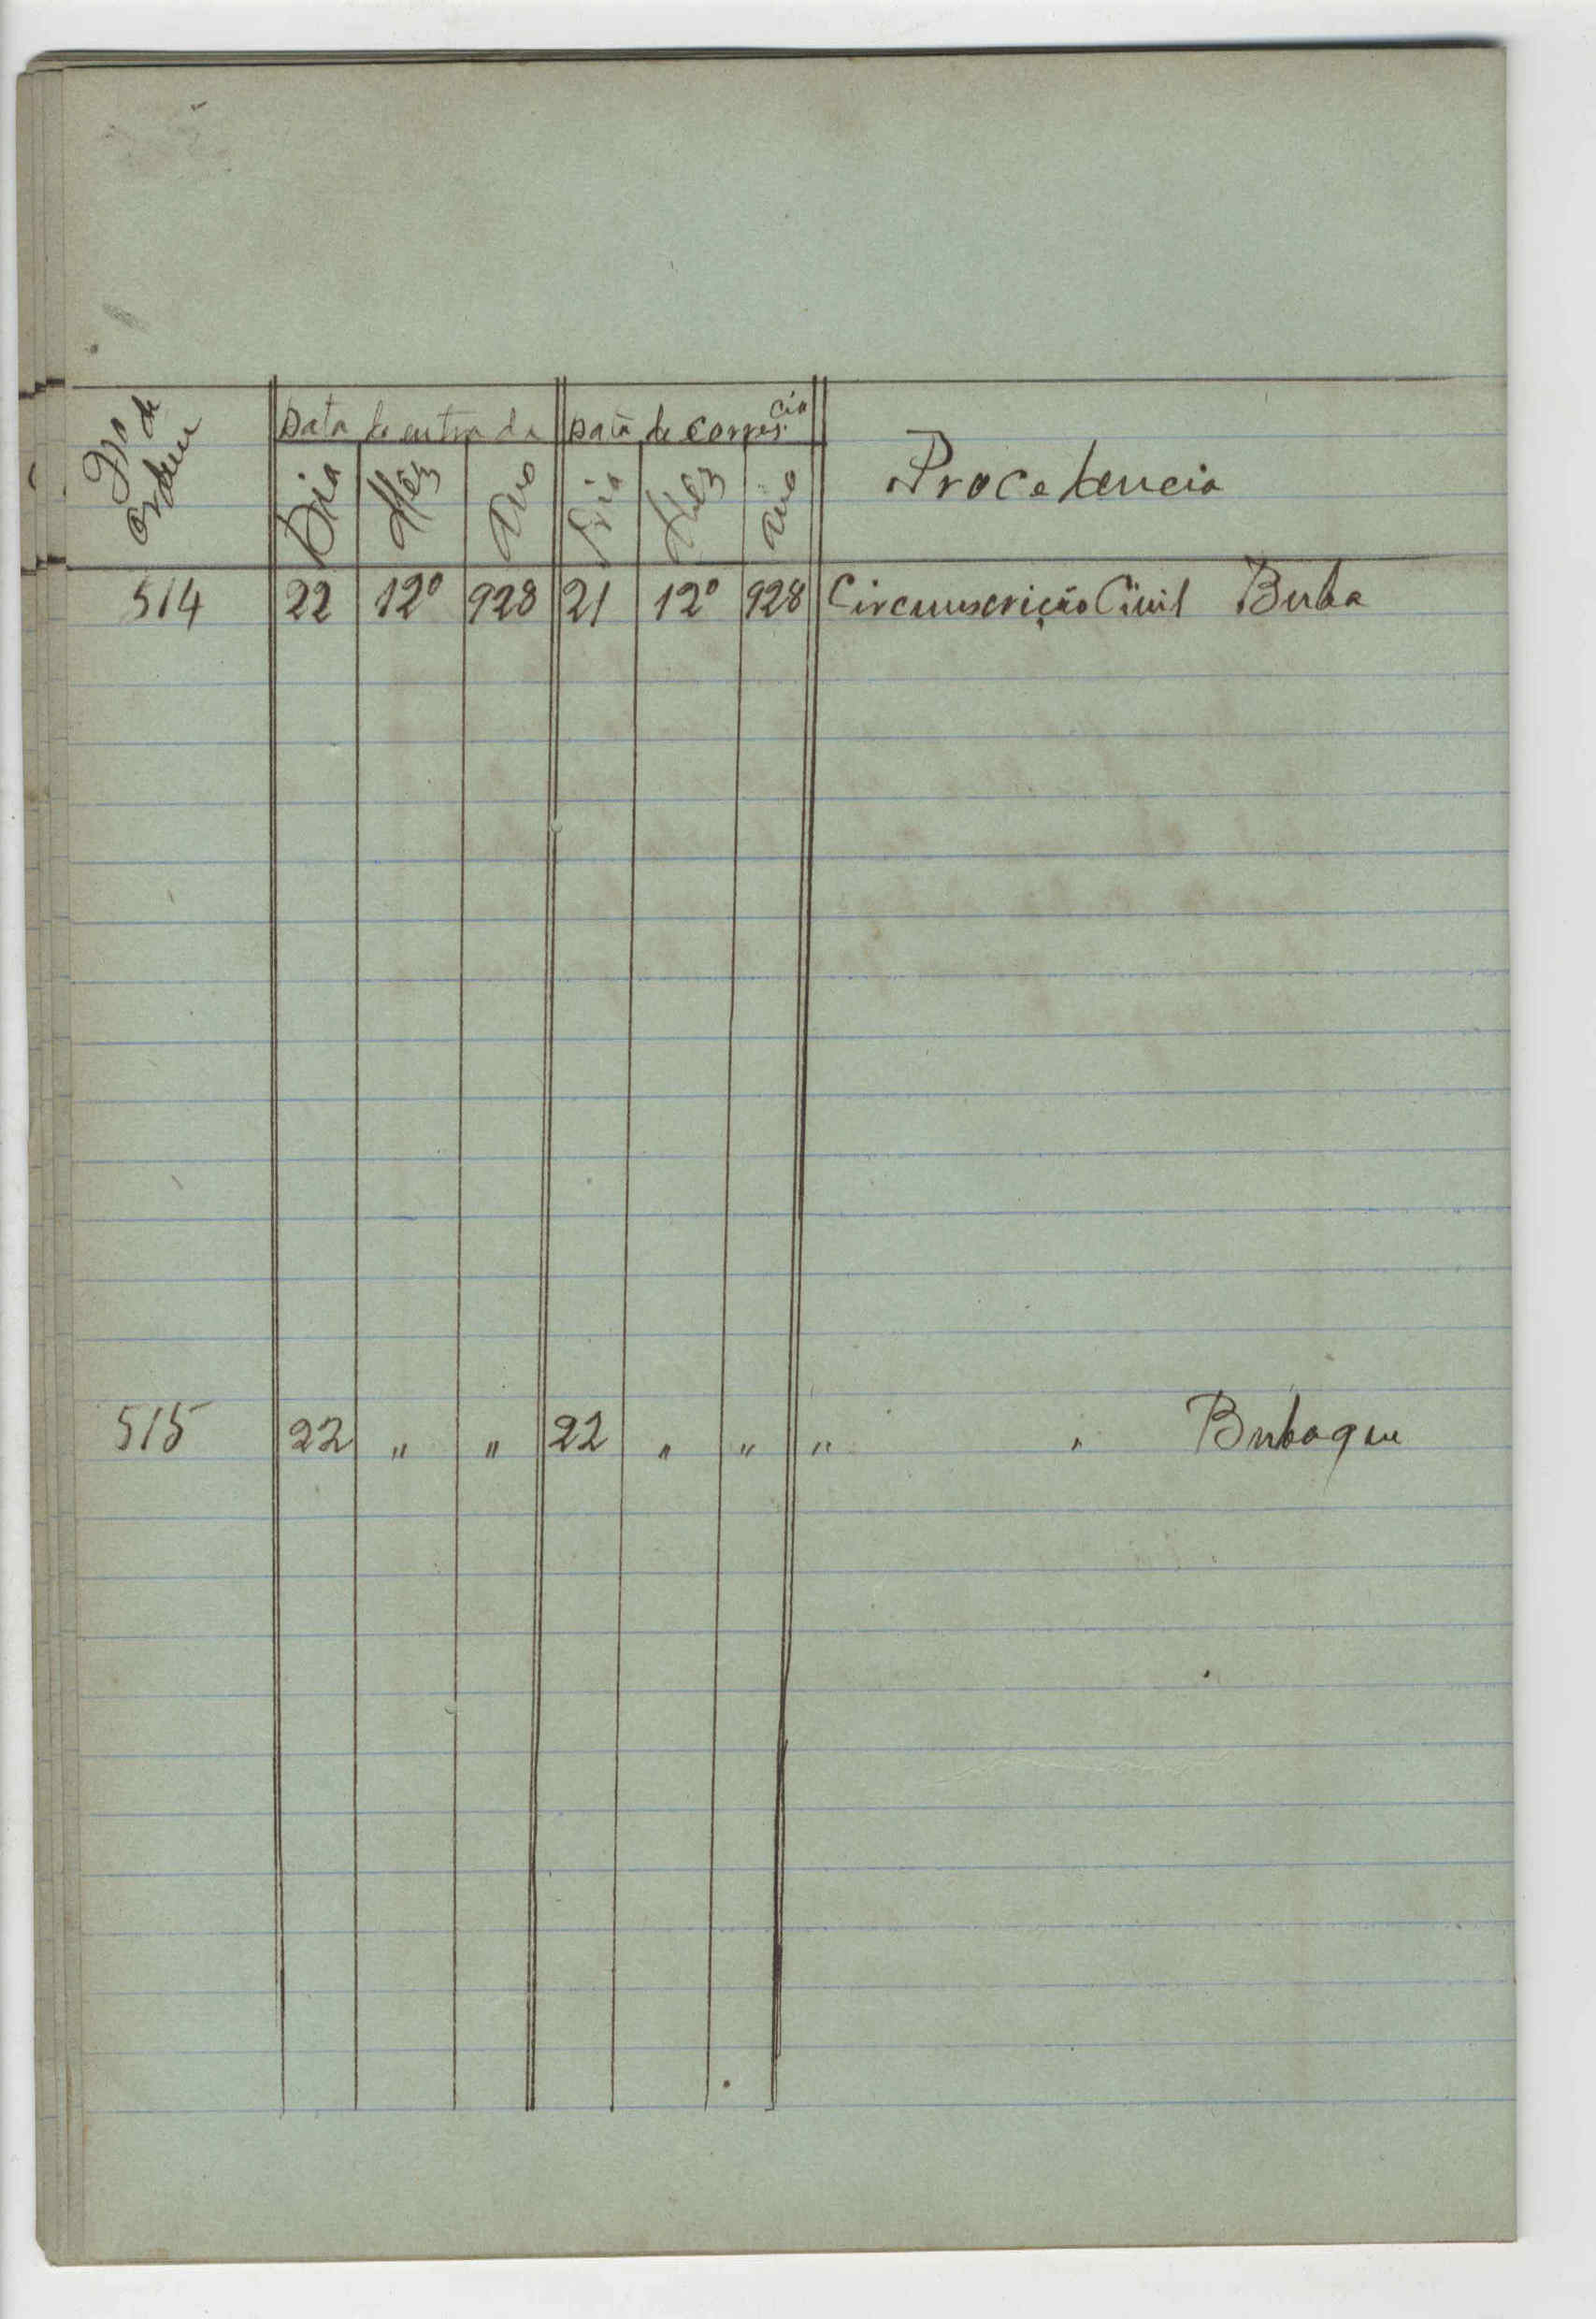 No de ordem
Data de entrada
Data de corres.cia
Procedencia
Dia Mêz Ano Dia Mêz Ano
514 22 12º 928 21 12º 928 Circunscrição Civil Buba
515 22 " " 22 " " " " Bubaque